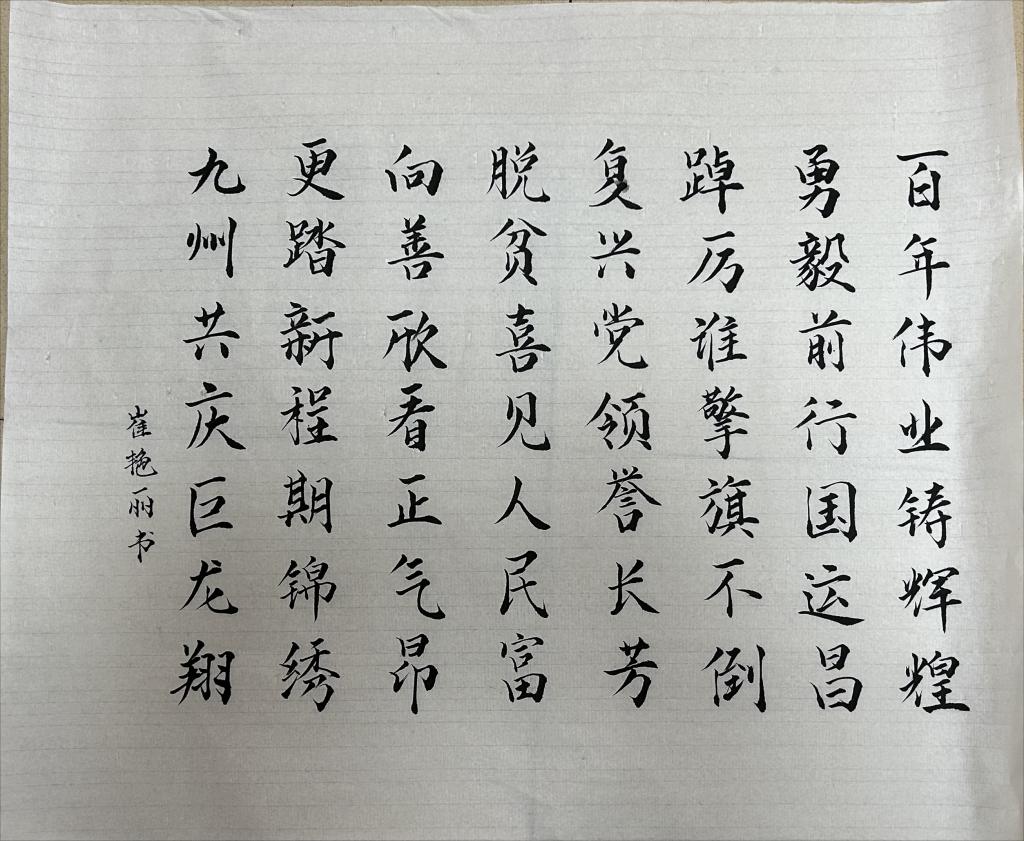 百年伟业铸辉煌
勇毅前行国运昌
踔厉谁擎旗不倒
复兴党领誉长芳
脱贫喜见人民富
向善欣看正气昂
更踏新程期锦绣
九州共庆巨龙翔
崔艳丽书